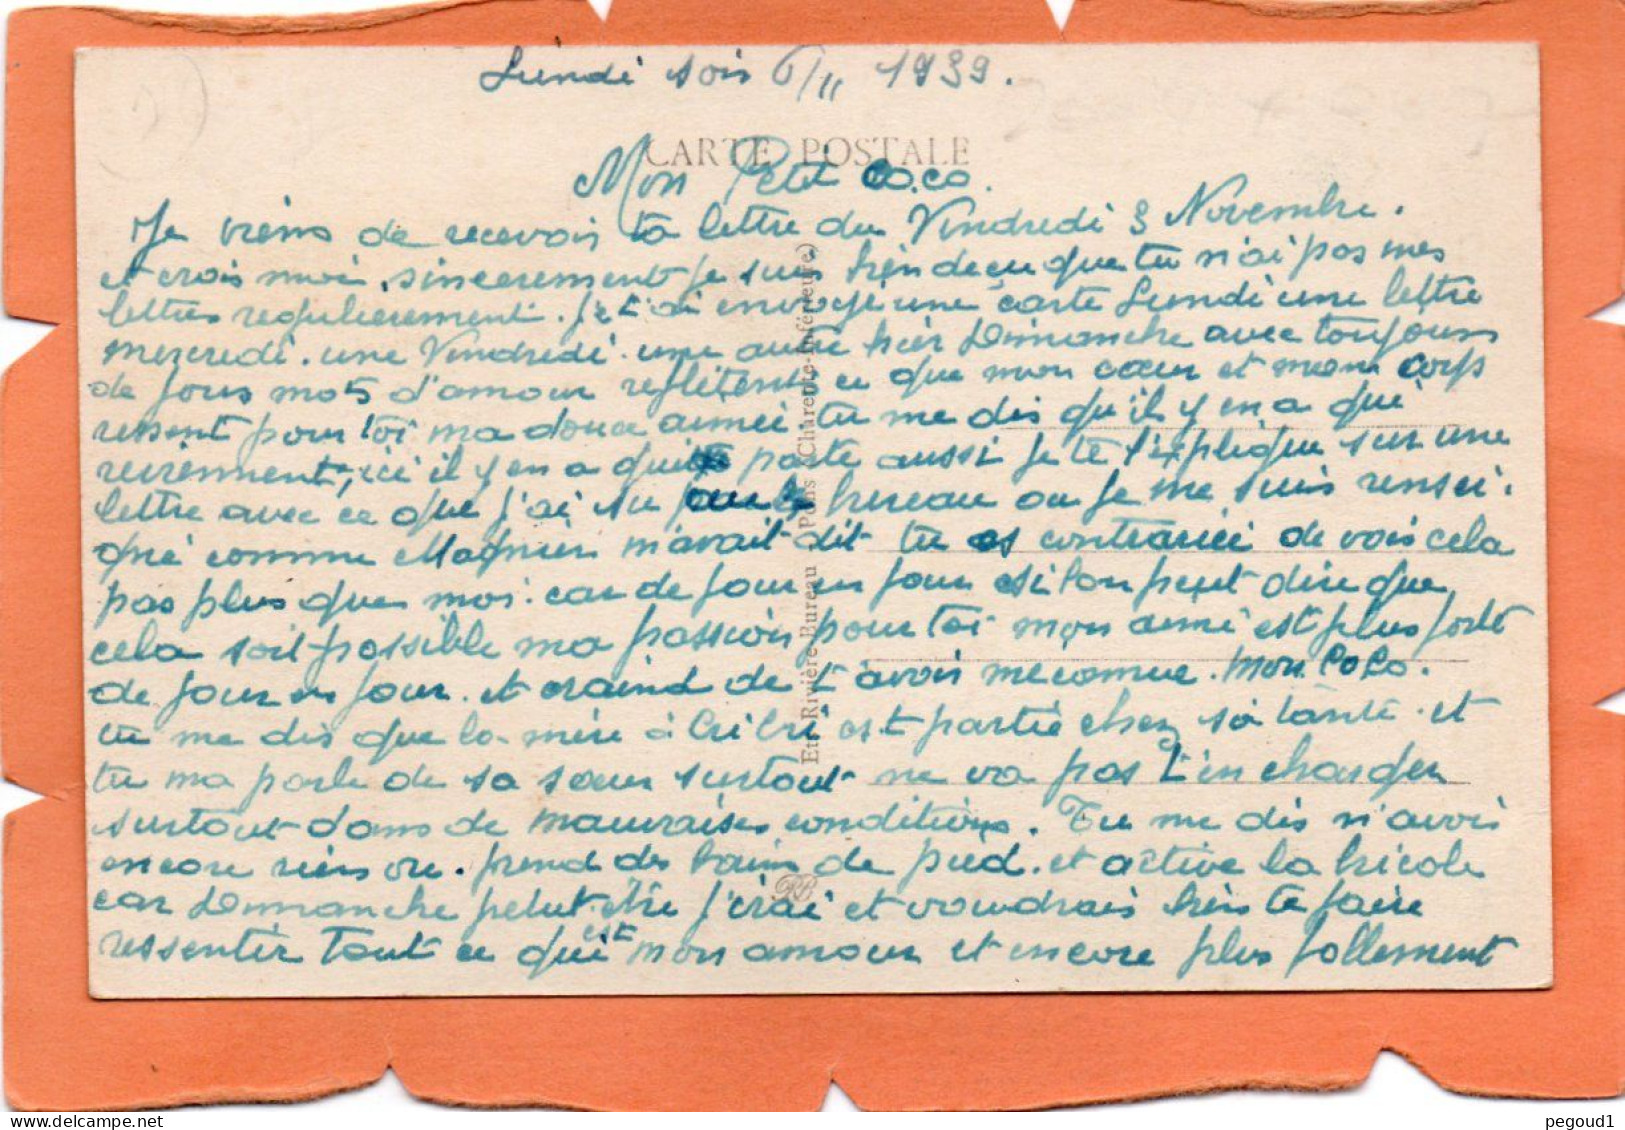 Lundi soir 6/11 1939.
CARTE POSTALE
Mon Petit Co.co.
Je viens de recevoir ta lettre du Vendredi 3 Novembre.
et crois moi, sincerement je suis bien decu que tu n'ai pas mes
lettres regulierement. Je t'ai envoyé une carte Lundi une lettre
mercredi. une Vendredi. une autre hier Dimanche avec toujours
de jous mots d'amour reflétent ce que mon cœur et mon corps
ressent pour toi ma douce aimée. tu me dis qu'il y en a qui
reviennent, ici il y en a qui parte aussi je te l'explique sur une
lettre avec ce que j'ai su au bureau ou je me suis rensei.
gné comme Magnier m'avait dit tu es contrariée de voir cela
pas plus que moi. car de jour en jour si l'on peut dire que
cela soit possible ma passion pour toi mon aimé est plus forte
de jour en jour. et craind de t'avoir meconnue. Mon CoCo.
tu me dis que la mère à CriCri est partie chez sa tante. et
tu ma parle de sa sœur surtout ne va pas t'en charger
surtout dans de mauvaises conditions. Tu me dis n'avoir
encore rien vu. prend des bains de pied. et active la bricole
car Dimanche peut être j'irai et voudrais bien te faire
ressentir tout ce qui est mon amour et encore plus follement
Etr Rivière-Bureau Pons (Charente-Inférieure)
RB
pegoud1